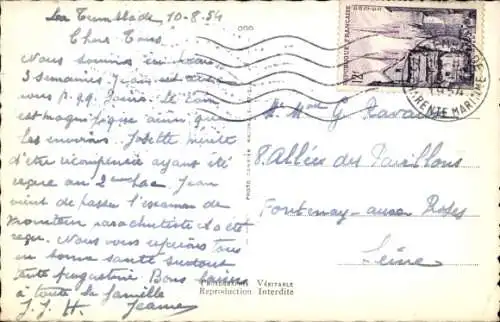 La Tremblade 10-8-54
Chers Tous
Nous sommes ici
3 semaines Jean est
pr 99 jours. Le coin
est magnifique ainsi que
les environs. Josette mérite
d'être récompensée ayant été
reçue au 2eme bac. Jean
vient de passer l'examen de
moniteur parachutiste et a été
reçu. Nous vous espérons tous
en bonne santé surtout
tante Augustine. Bons baisers
à toute la famille
J. J. H. Jeanne
Me Mme G
8 Allées des Pavillons
Fontenay-aux-Roses
Seine
RÉPUBLIQUE FRANÇAISE
12F
CHARENTE MARITIME
Véritable
Reproduction Interdite